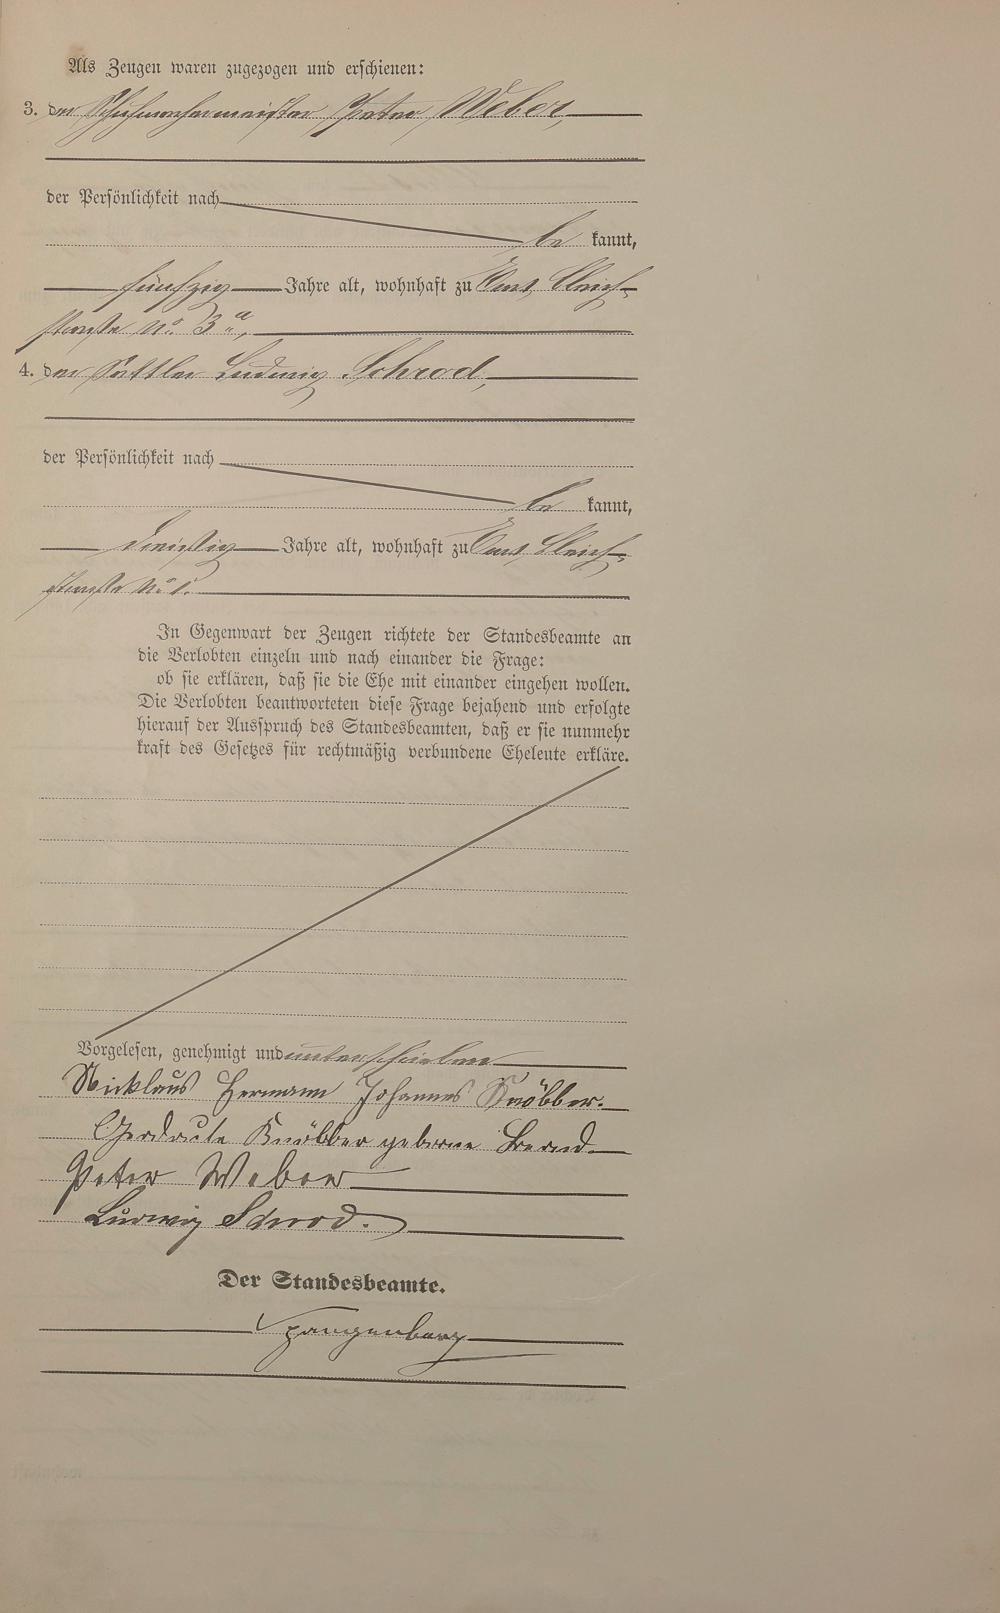 Als Zeugen waren zugezogen und erschienen:
3. der Schuhmachermeister Peter Weber,
der Persönlichkeit nach
be kannt,
fünfzig Jahre alt, wohnhaft zu Ems, Bleich-
straße No. 3a,
4. der Sattler Ludwig Schrod,
der Persönlichkeit nach
be kannt,
dreißig Jahre alt, wohnhaft zu Ems, Bleich-
straße No. 1.
In Gegenwart der Zeugen richtete der Standesbeamte an
die Verlobten einzeln und nach einander die Frage:
ob sie erklären, daß sie die Ehe mit einander eingehen wollen.
Die Verlobten beantworteten diese Frage bejahend und erfolgte
hierauf der Ausspruch des Standesbeamten, daß er sie nunmehr
kraft des Gesetzes für rechtmäßig verbundene Eheleute erkläre.
Vorgelesen, genehmigt und unterschrieben
Nicklaus Hermann Johannes Knöbber.
Knöbber geborne
Peter Weber
Ludwig Schrod.
Der Standesbeamte.
Spangenberg